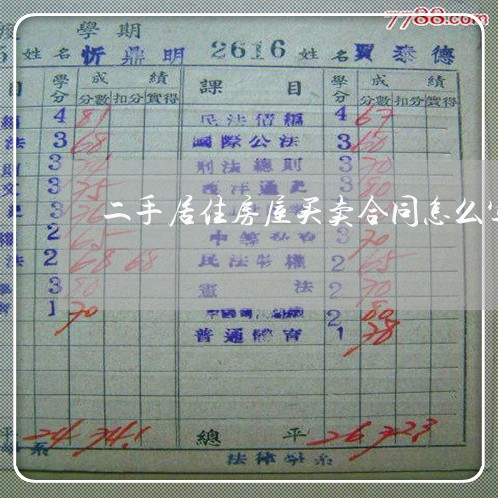 7788.com
學期
姓名 忻鼎明 2616 姓名 賈泰德
目 學分 成績 課目 學分 成績
分數 扣分 實得 分數 扣分 實得
4 81 民法債編 4 67
法 3 68 國際公法 3 60
3 刑法總則 3 70
3 75 西洋通史 3 80
3
二手居住房屋买卖合同怎么
2 65 3 70
法 2 68 68 民法物權 2 65
3 80 憲法 2 70
1 70 2 80
普通體育 1 78
平 24 74.1 總平 26 72.3
系 法律學系